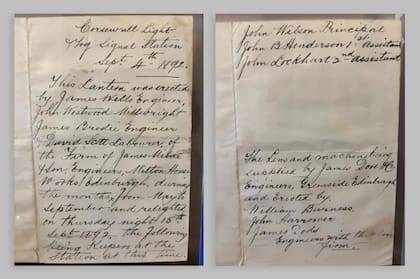 Corsewall Light
& Fog Signal Station
Sept 4th 1892.
This Lantern was erected
by James Wells Engineer,
John Westwood Millwright
James Brodie Engineer
David Scott Labourer, of
the Firm of James Milne
& Son, Engineers, Milton House
Works, Edinburgh, during
the months, from May to
September and relighted
on Thursday night 15th
Sept 1892, the following
being Keepers at the
Station at this time.
John Wilson Principal
John B Henderson 1st assistant
John Lockhart 2nd assistant
The Lens and machine being
supplied by James Dove & Co
Engineers, Greenside Edinburgh
and erected by
William Burness
John Harrower
James Dods
Engineers with the above
firm